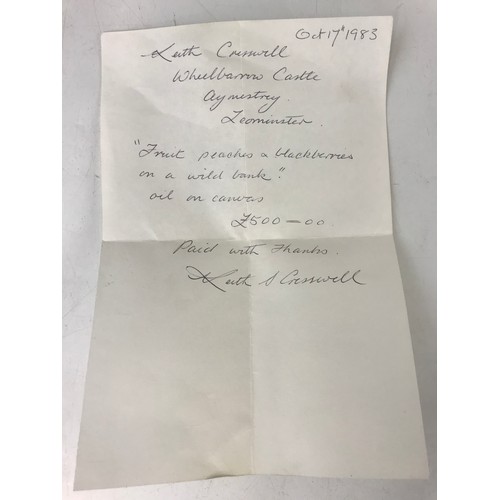 Oct 17th 1983
Keith Cresswell
Wheelbarrow Castle
Aymestrey.
Leominster.
"Fruit peaches & blackberries
on a wild bank".
oil on canvas
£500-00
Paid with Thanks.
Keith S Cresswell